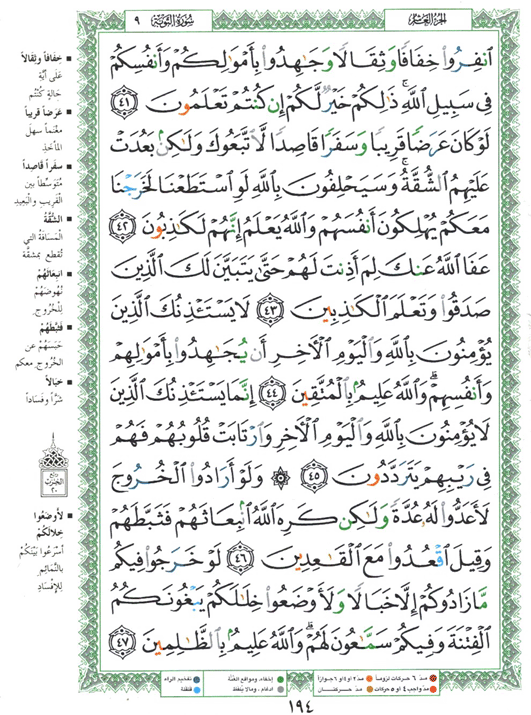 الجزء العاشر
سورة التوبة ٩
ٱنفِرُوا۟ خِفَافًا وَثِقَالًا وَجَـٰهِدُوا۟ بِأَمْوَٰلِكُمْ وَأَنفُسِكُمْ
فِى سَبِيلِ ٱللَّهِ ۚ ذَٰلِكُمْ خَيْرٌ لَّكُمْ إِن كُنتُمْ تَعْلَمُونَ ٤١
لَوْ كَانَ عَرَضًا قَرِيبًا وَسَفَرًا قَاصِدًا لَّٱتَّبَعُوكَ وَلَـٰكِنۢ بَعُدَتْ
عَلَيْهِمُ ٱلشُّقَّةُ ۚ وَسَيَحْلِفُونَ بِٱللَّهِ لَوِ ٱسْتَطَعْنَا لَخَرَجْنَا
مَعَكُمْ يُهْلِكُونَ أَنفُسَهُمْ وَٱللَّهُ يَعْلَمُ إِنَّهُمْ لَكَـٰذِبُونَ ٤٢
عَفَا ٱللَّهُ عَنكَ لِمَ أَذِنتَ لَهُمْ حَتَّىٰ يَتَبَيَّنَ لَكَ ٱلَّذِينَ
صَدَقُوا۟ وَتَعْلَمَ ٱلْكَـٰذِبِينَ ٤٣ لَا يَسْتَـْٔذِنُكَ ٱلَّذِينَ
يُؤْمِنُونَ بِٱللَّهِ وَٱلْيَوْمِ ٱلْـَٔاخِرِ أَن يُجَـٰهِدُوا۟ بِأَمْوَٰلِهِمْ
وَأَنفُسِهِمْ ۗ وَٱللَّهُ عَلِيمٌۢ بِٱلْمُتَّقِينَ ٤٤ إِنَّمَا يَسْتَـْٔذِنُكَ ٱلَّذِينَ
لَا يُؤْمِنُونَ بِٱللَّهِ وَٱلْيَوْمِ ٱلْـَٔاخِرِ وَٱرْتَابَتْ قُلُوبُهُمْ فَهُمْ
فِى رَيْبِهِمْ يَتَرَدَّدُونَ ٤٥ ۞ وَلَوْ أَرَادُوا۟ ٱلْخُرُوجَ
لَأَعَدُّوا۟ لَهُۥ عُدَّةً وَلَـٰكِن كَرِهَ ٱللَّهُ ٱنۢبِعَاثَهُمْ فَثَبَّطَهُمْ
وَقِيلَ ٱقْعُدُوا۟ مَعَ ٱلْقَـٰعِدِينَ ٤٦ لَوْ خَرَجُوا۟ فِيكُم
مَّا زَادُوكُمْ إِلَّا خَبَالًا وَلَأَوْضَعُوا۟ خِلَـٰلَكُمْ يَبْغُونَكُمُ
ٱلْفِتْنَةَ وَفِيكُمْ سَمَّـٰعُونَ لَهُمْ ۗ وَٱللَّهُ عَلِيمٌۢ بِٱلظَّـٰلِمِينَ ٤٧
خِفافاً وثِقالاً
عَلَى أيَّةِ
حَالةٍ كُنْتُم
عَرَضاً قريباً
مَغْنَماً سهلَ
المأخذِ
سفراً قاصِداً
مُتوسّطاً بين
القريب والبَعيد
الشُّقَّةُ
المَسَافةُ التي
تُقطع بمشقّة
انبِعَاثَهُمْ
نُهوضَهُمْ
للخُروج
فثبَّطَهُمْ
حَبَسَهُمْ عن
الخُروجِ معكم
خَبَالاً
شرّاً وفَسَاداً
ربع
الحزب
٢٠
لأوضَعُوا
خِلالَكُمْ
أسْرَعُوا بَيْنَكُمْ
بالنَّمائِمِ
للإفْسَادِ
مدّ ٦ حركات لزوماً
مدّ ٢ أو ٤ أو ٦ جوازاً
إخفاء، ومواقع الغُنَّة
تفخيم الراء
مدّ واجب ٤ أو ٥ حركات
مدّ حركتان
ادغام، وما لا يُلفَظ
قلقلة
١٩٤